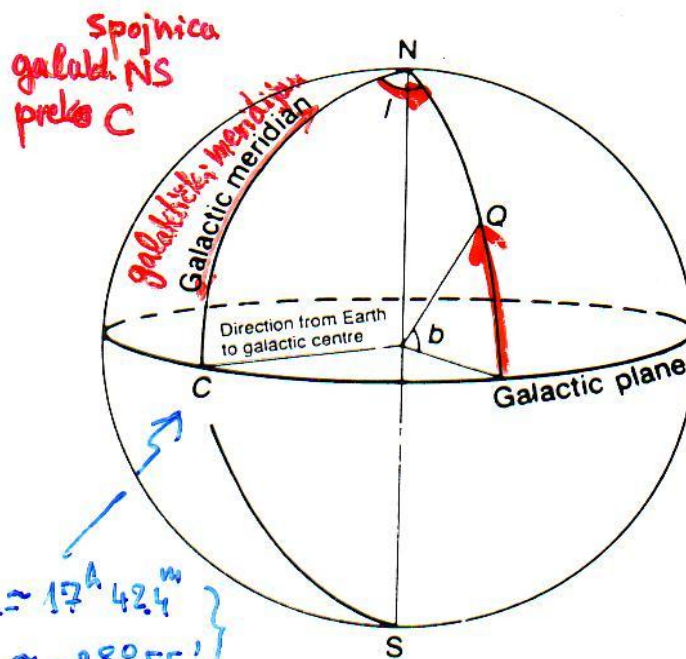 spojnica
galakt. NS
preko C
N
l
galaktički meridijan
Galactic meridian
Q
Direction from Earth
to galactic centre
b
C
Galactic plane
≈ 17ʰ 42.4ᵐ
≈ -28°55'
S